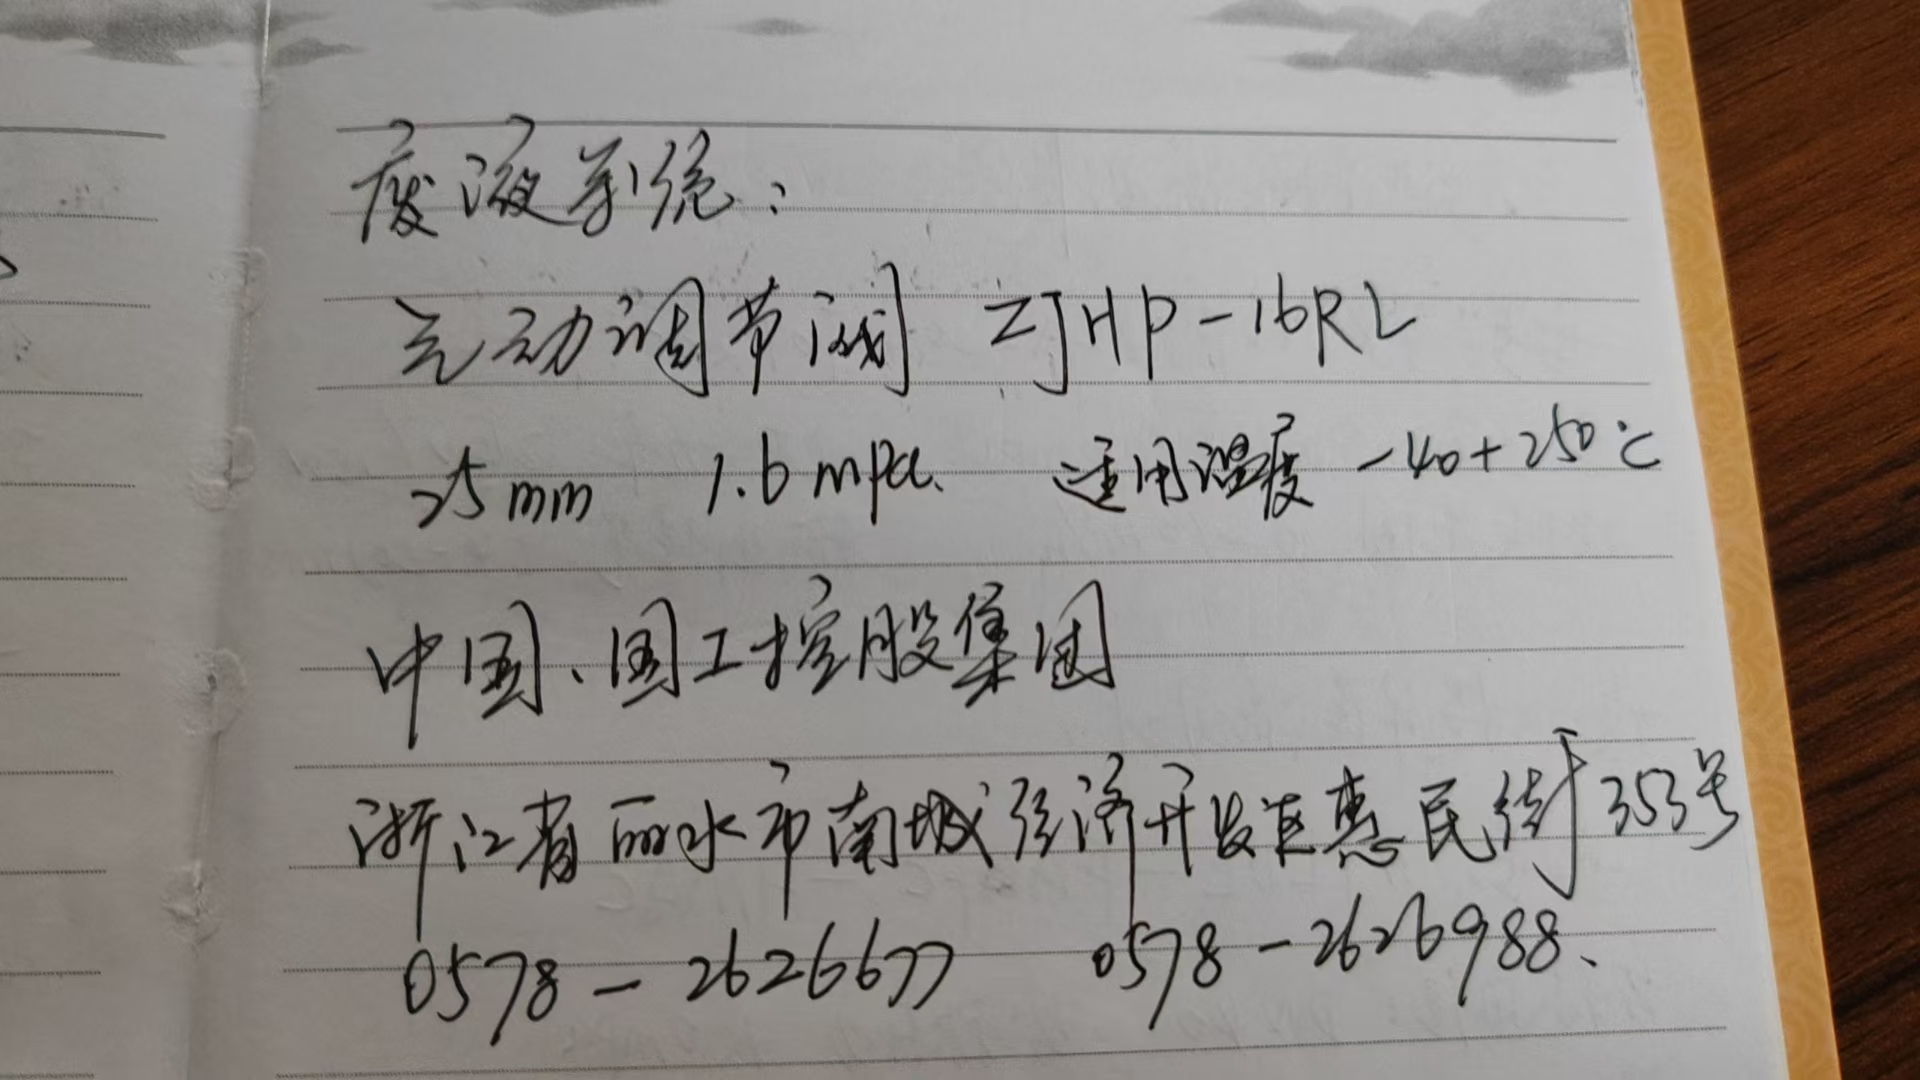 废液系统：
气动调节阀 ZJHP-16RL
25mm 1.6mpa. 适用温度 -40+250℃
中国、国工控股集团
浙江省丽水市南城经济开发区惠民街353号
0578-2626677 0578-2626988、